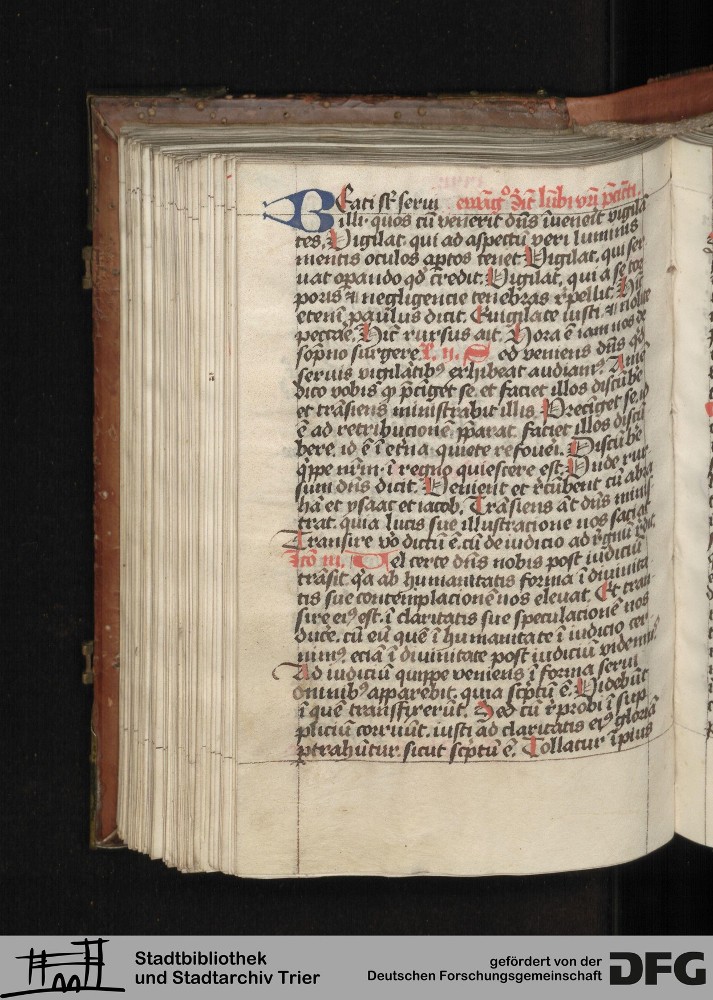 Beati st̄ serui
illi. quos cū venerit dn̄s īuenerit vigilā
tes. Vigilat. qui ad aspectū veri luminis
mentis oculos aptos tenet. Vigilat. qui ser
uat opando qd̕ credit. Vigilat. qui a se tor
poris & negligencie tenebras rp̄ellit. Hīc
etenī paulus dicit. Euigilate iusti. & nolite
peccāe. Hīc rursus ait. Hora ē iam nos de
sōpno surgere. L. ii. Sed veniens dn̄s qd̕
seruis vigilātibꝰ exhibeat audiamꝰ. Amē
dico vobis ꝙ pcīget se. et faciet illos discūbe
et trāsiens ministrabit illis. Precīget se. id
ē ad retribucionē pp̄arat. faciet illos discū
bere. id ē ī etn̄a quiete refoueri. Discūbe
qͥppe nr̄m. ī regno quiescere est. Vnde rur
sum dn̄s dicit. Venient et rcūbent cū abra
hā et ysaac et iacob. Trāsiens āt dn̄s minis
trat. quia lucis sue illustracione nos saciat.
Transire vo dictū ē. cū de iudicio ad rgnū rdit.
Lco iii. Vel certe dn̄s nobis post iudiciū
trāsit. qͥa ab humanitatis forma ī diuinita
tis sue contēplacionē nos eleuat. Et tran
sire eiꝰ est. ī claritatis sue speculacionē nos
duce. cū eū quē ī humanitate ī iudicio cer
nimꝰ. eciā ī diuinitate post iudiciū videmꝰ.
Ad iudiciū quippe veniens ī forma serui
omnibꝰ apparebit. quia scptū ē. Videbūt
ī quē transfixerūt. Sed cū rprobi ī sup
pliciū corruūt. iusti ad claritatis eiꝰ gloriā
ptrahūtur. sicut scptū ē. Tollatur īpius
Stadtbibliothek
und Stadtarchiv Trier
gefördert von der
Deutschen Forschungsgemeinschaft
DFG